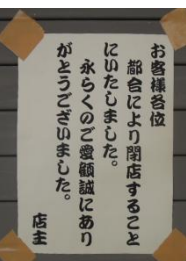 お客様各位
都合により閉店すること
にいたしました。
永らくのご愛顧誠にあり
がとうございました。
店主